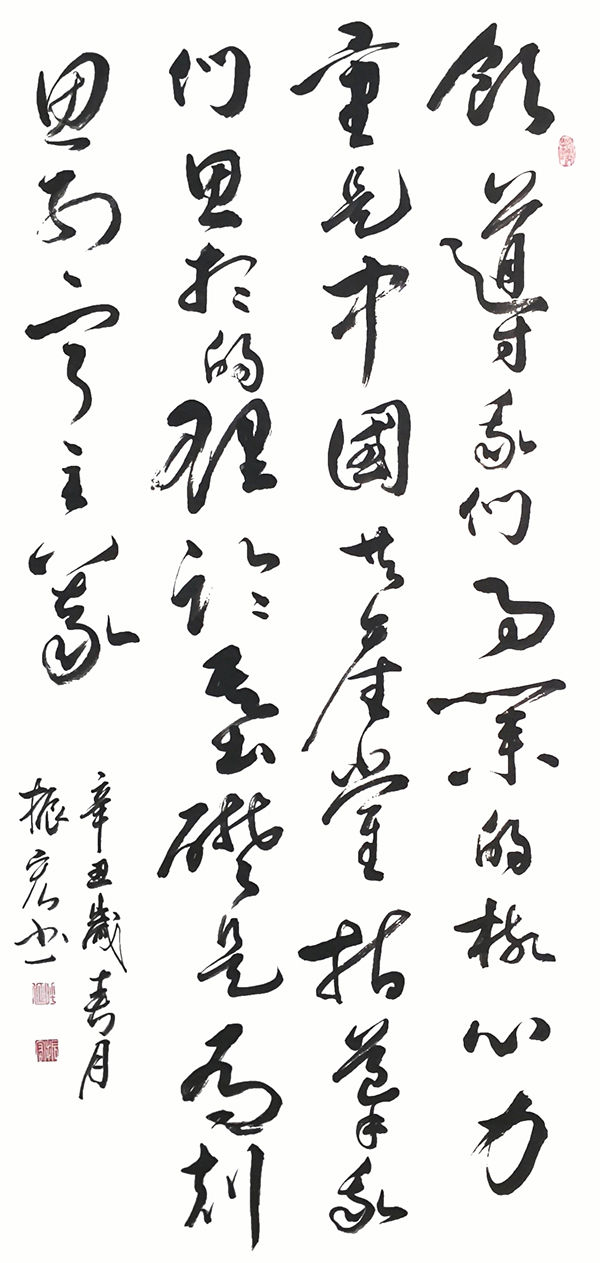 領導我們事業的核心力
量是中國共產黨指導我
們思想的理論基礎是馬剋
思列寧主義
辛丑歲春月
振宏书